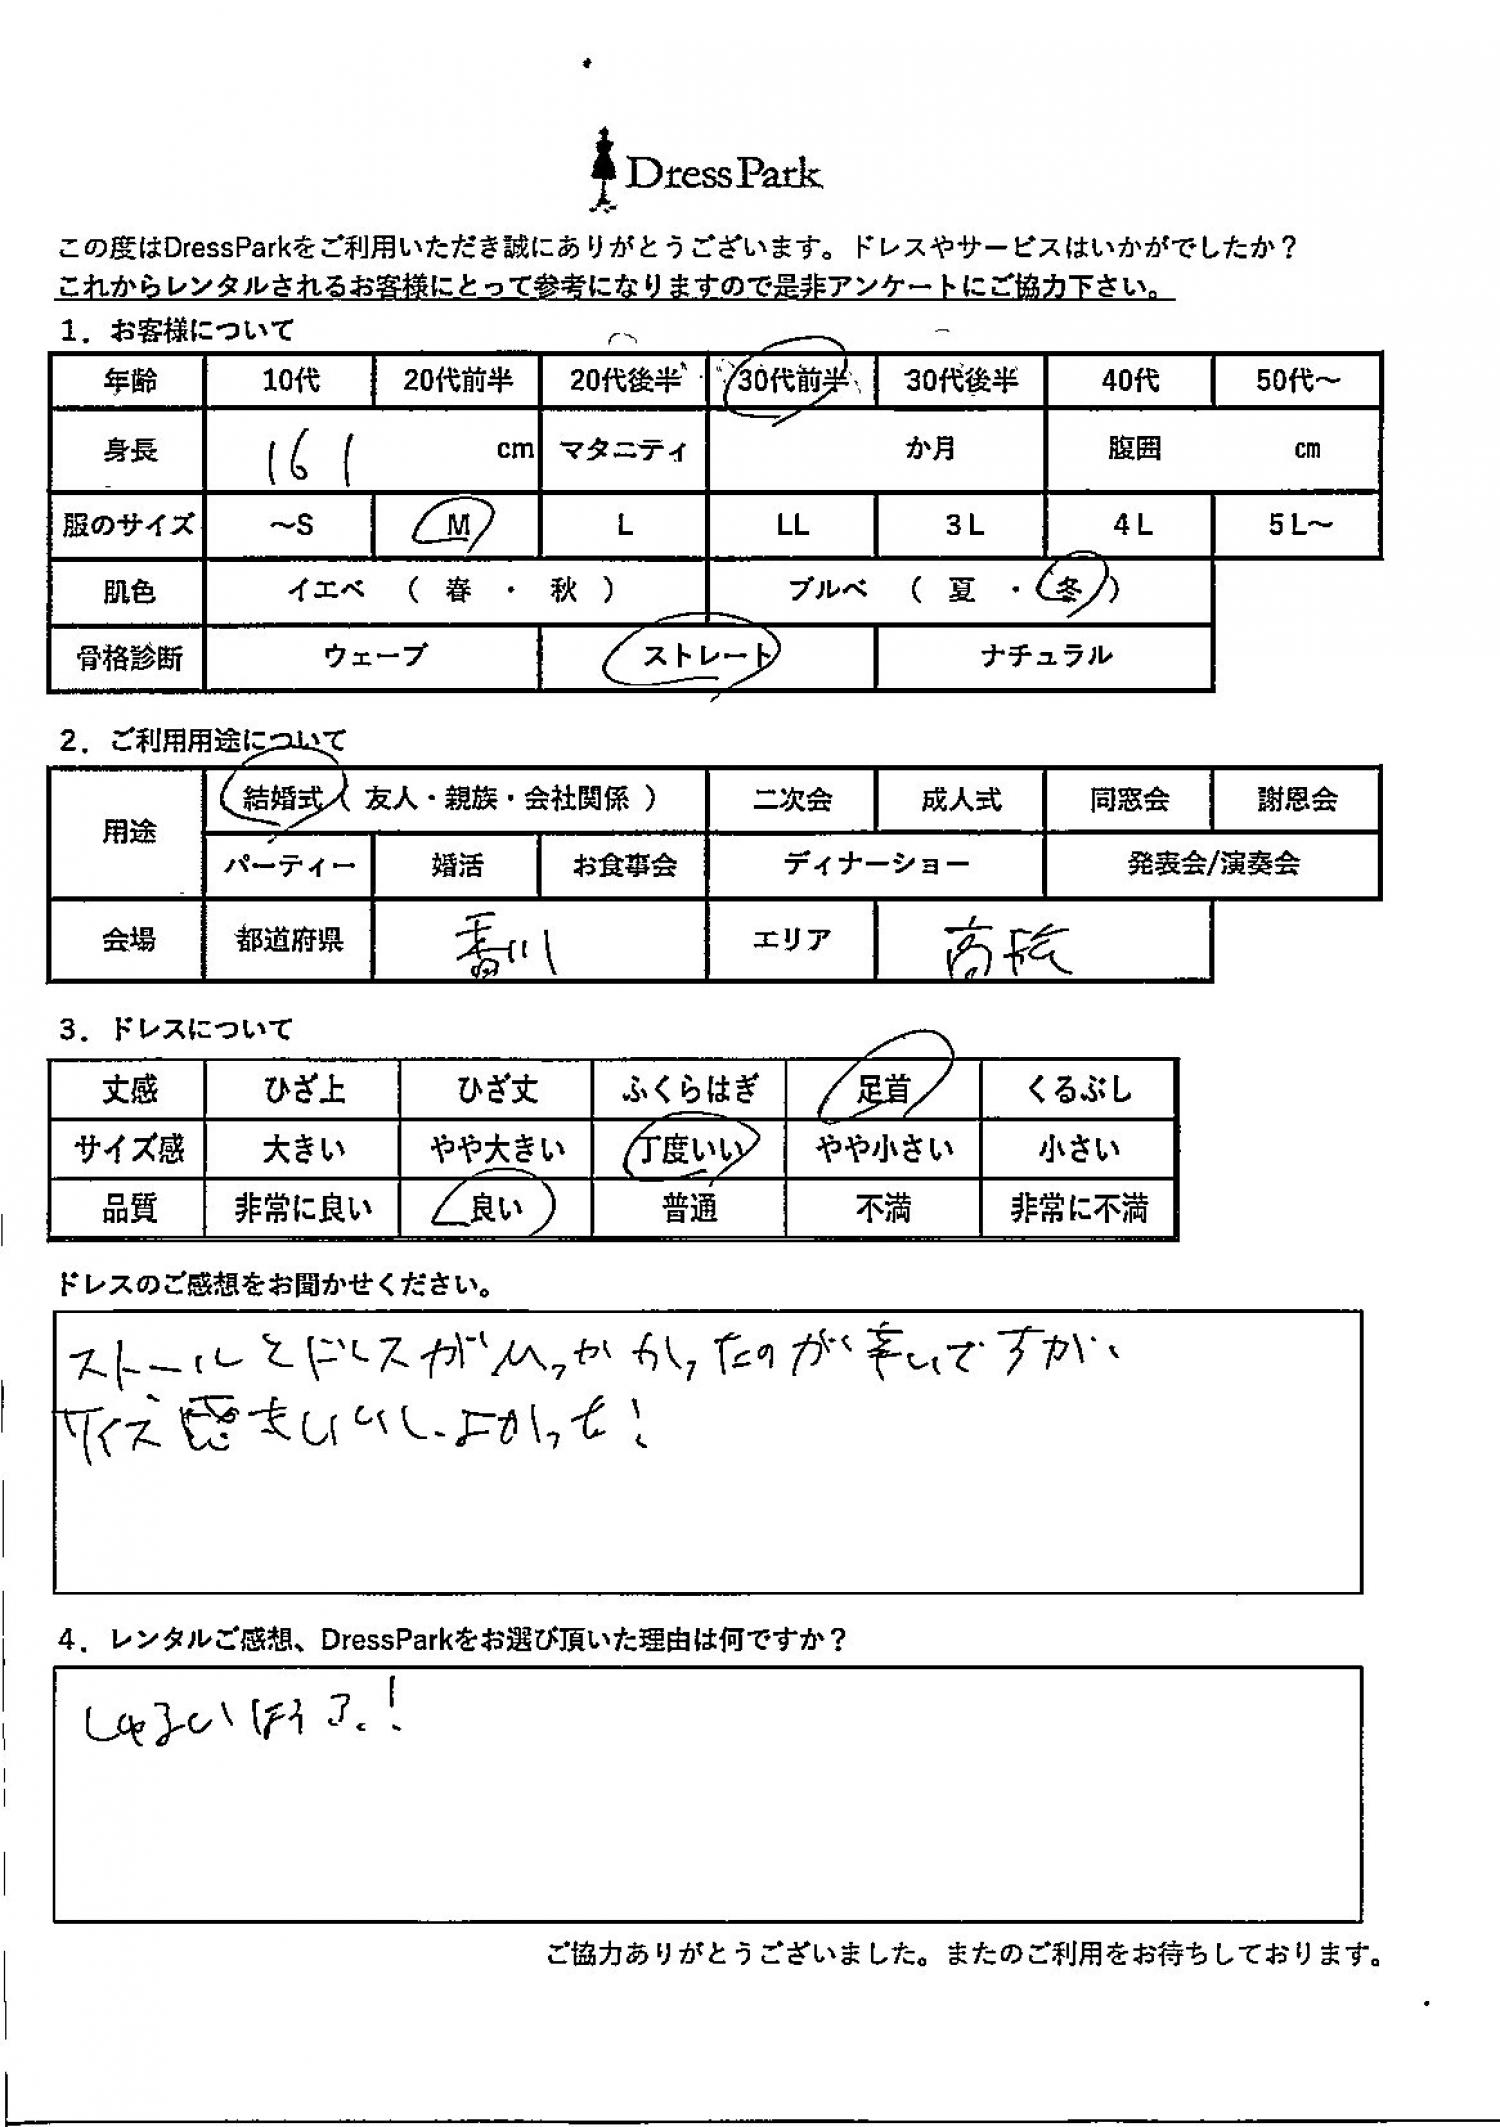 DressPark
この度はDressParkをご利用いただき誠にありがとうございます。ドレスやサービスはいかがでしたか？
これからレンタルされるお客様にとって参考になりますので是非アンケートにご協力下さい。
1．お客様について
年齢 10代 20代前半 20代後半 30代前半 30代後半 40代 50代～
身長 161 cm マタニティ か月 腹囲 cm
服のサイズ ～S M L LL 3L 4L 5L～
肌色 イエベ （ 春 ・ 秋 ） ブルベ （ 夏 ・ 冬 ）
骨格診断 ウェーブ ストレート ナチュラル
2．ご利用用途について
用途 結婚式（ 友人・親族・会社関係 ） 二次会 成人式 同窓会 謝恩会
パーティー 婚活 お食事会 ディナーショー 発表会/演奏会
会場 都道府県 香川 エリア 高松
3．ドレスについて
丈感 ひざ上 ひざ丈 ふくらはぎ 足首 くるぶし
サイズ感 大きい やや大きい 丁度いい やや小さい 小さい
品質 非常に良い 良い 普通 不満 非常に不満
ドレスのご感想をお聞かせください。
ストールとドレスがひっかかったのが辛いですが、
サイズ感もいいし、よかった！
4．レンタルご感想、DressParkをお選び頂いた理由は何ですか？
しゅるいほうふ！
ご協力ありがとうございました。またのご利用をお待ちしております。